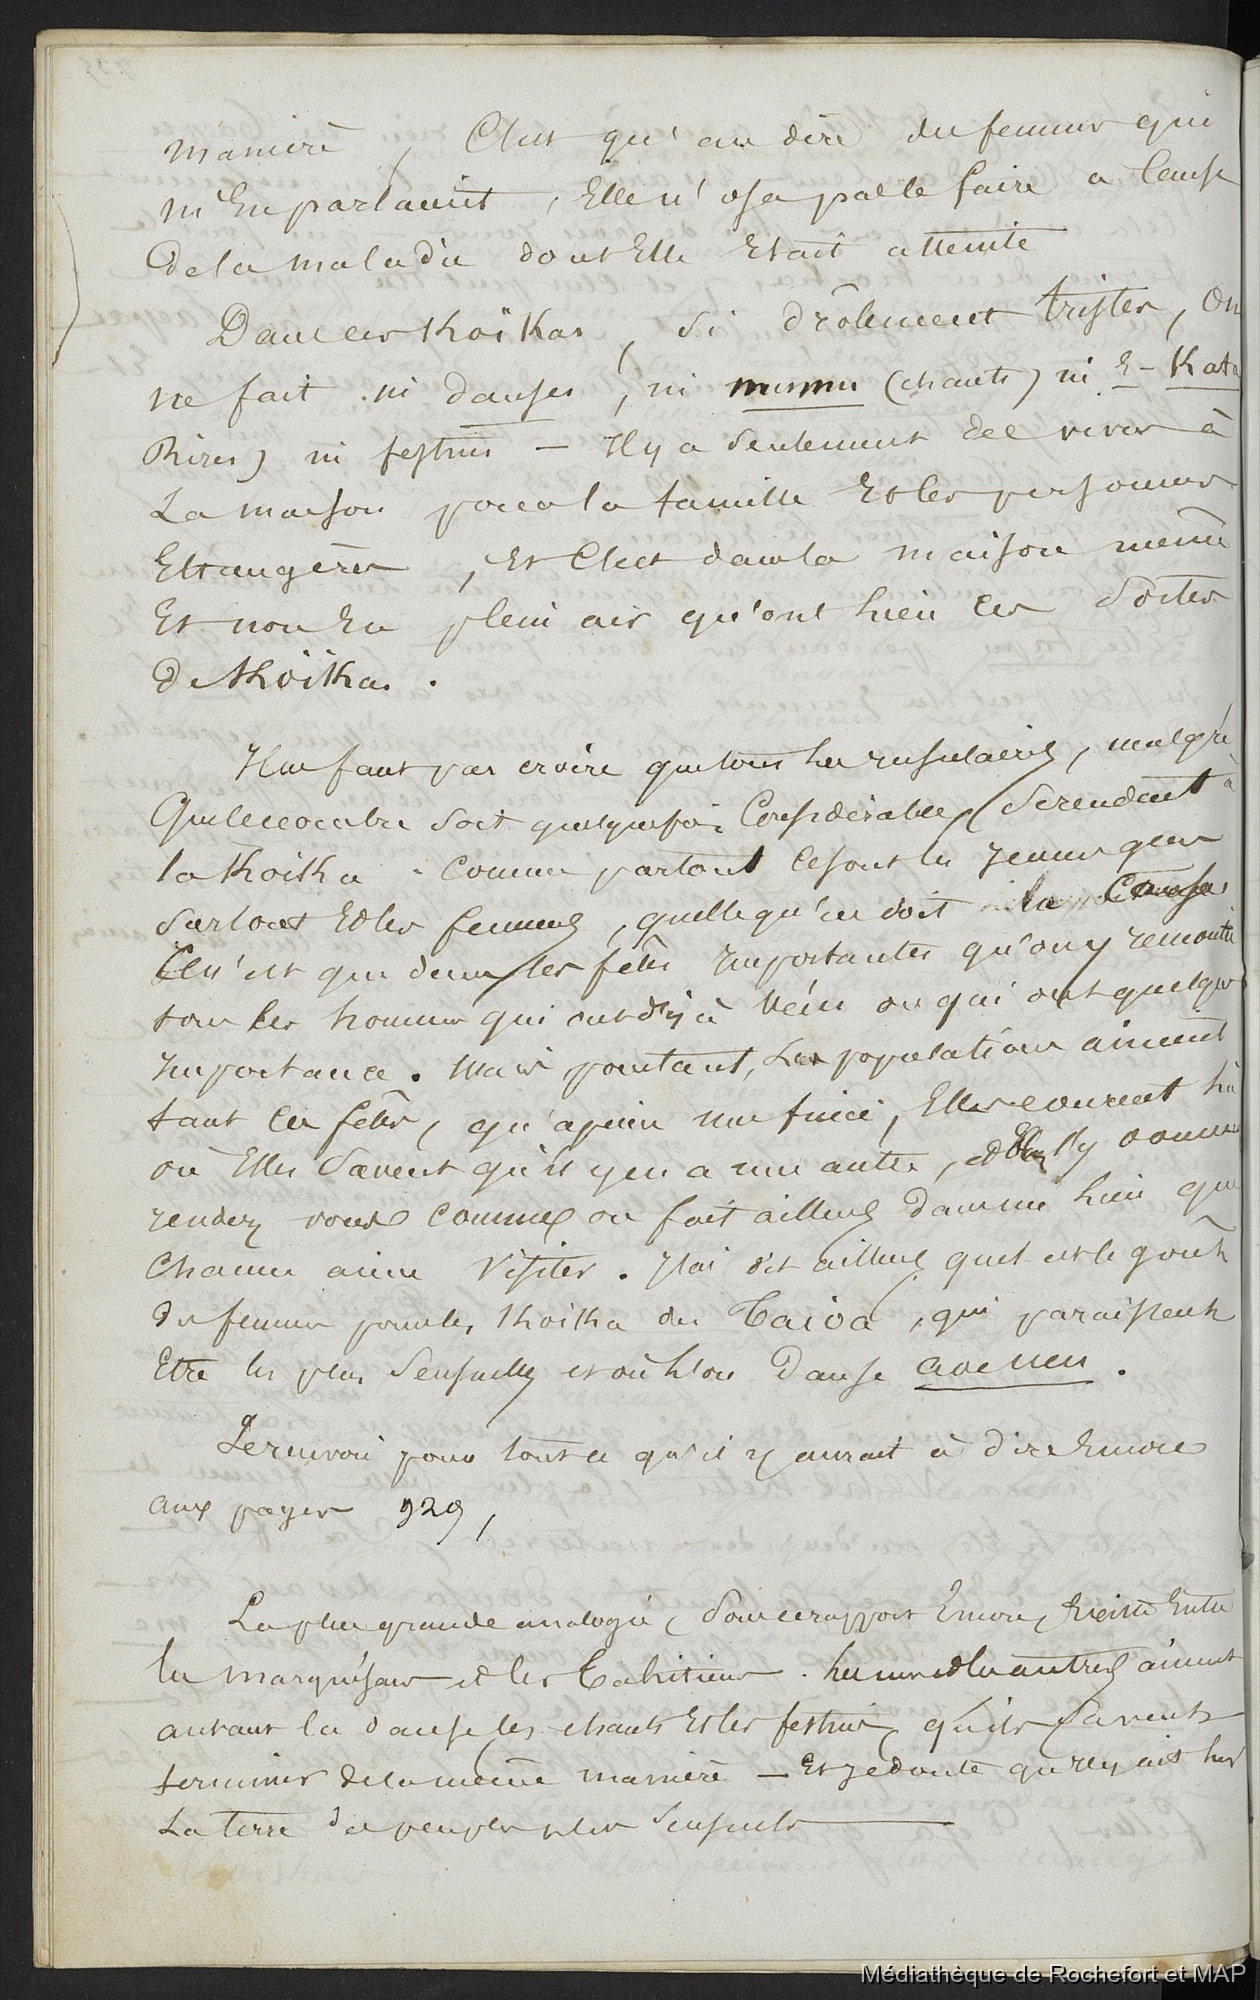 manière, C'est qu'au dire des femmes qui
m'En parlaient, Elle n'osa pas le faire a Cause
de la maladie dont Elle Etait atteinte
Dans ces Koïkas, si drôlement tristes, On
ne fait ni danses, ni mumu (chants) ni E-Kata
Rires) ni festins — Il y a seulement des vivres à
La maison pour la famille Et les personnes
Etrangères, Et C'est dans la maison même
Et non En plein air qu'ont lieu ces Sortes
de Koïkas.
Il ne faut pas croire que tous les Insulaires, malgré
que le nombre soit quelquefois Considérable, Se rendent à
la Koika. Comme partout ce sont les jeunes gens
surtout Et les femmes, quelle qu'en soit la Cause
Ce n'est que dans les fêtes Importantes qu'on y rencontre
tous les hommes qui ont déjà vécu ou qui ont quelque
Importance. Mais pourtant, Les populations aiment
tant ces fêtes, qu'à peine une finie, Elles courent là
où Elles Savent qu'il y en a une autre, et Elles s'y donnent
rendez vous comme on fait ailleurs dans un lieu que
Chacun aime visiter. J'ai dit ailleurs quel est le goût
des femmes pour les Koika des Taioa, qui paraissent
Etre les plus Sensuelles et où l'on Danse
Je renvoie pour tout ce qu'il y aurait à dire Encore
aux pages 929,
La plus grande analogie, Sous ce rapport Encore, Existe Entre
les Marquisans et les Tahitiens. Les uns et les autres aiment
autant la danse les chants Et les festins, qu'ils Savent
terminer de la même manière — Et je doute qu'Il y ait sur
La terre des peuples plus Sensuels
Médiathèque de Rochefort et MAP